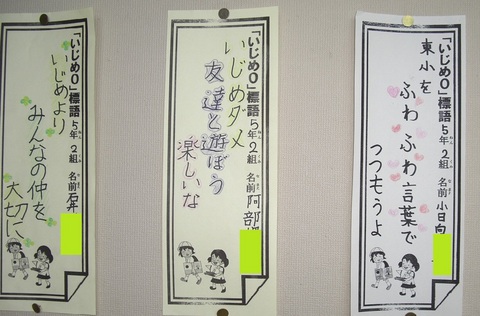 「いじめ0」標語 5年2組 名前 石井
いじめより
みんなの仲を
大切に
「いじめ0」標語 5年2組 名前 阿部
いじめダメ
友達と遊ぼう
楽しいな
「いじめ0」標語 5年2組 名前 小日向
東小を
ふわふわ言葉で
つつもうよ